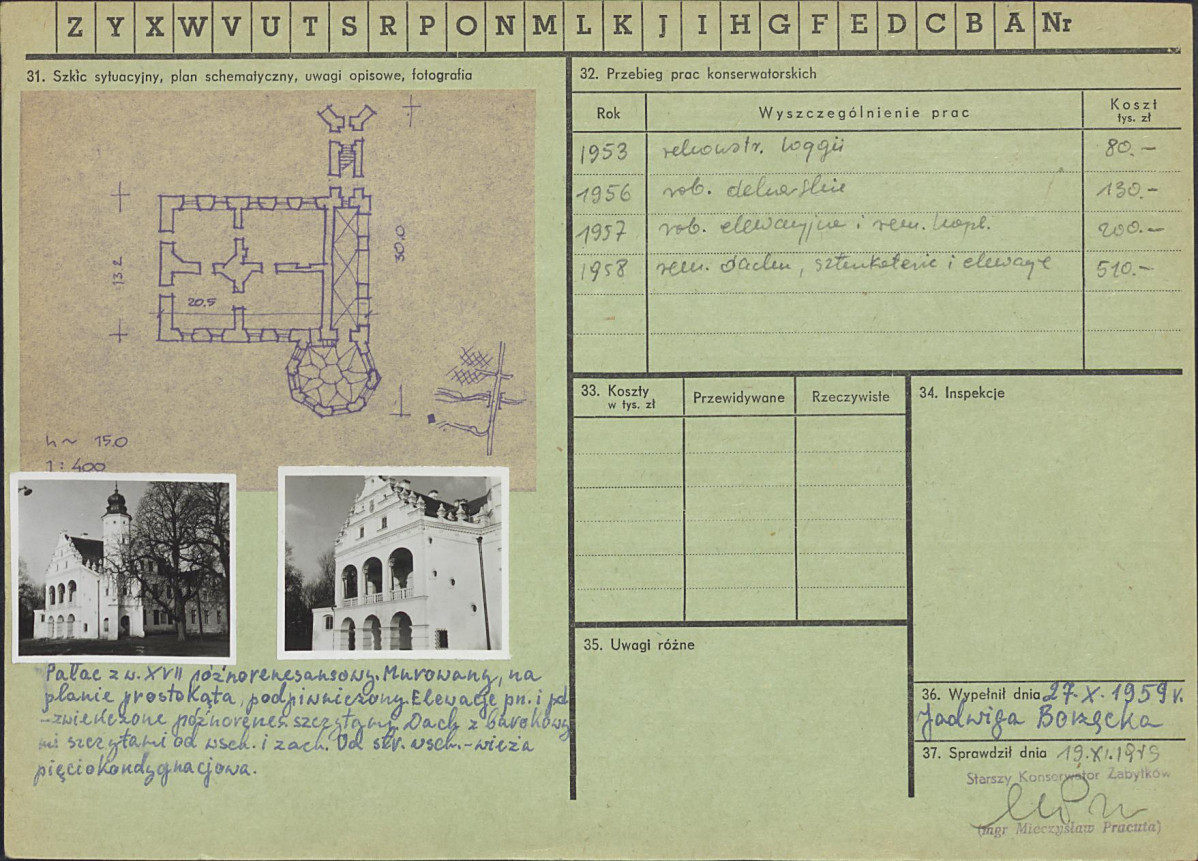 Z Y X W V U T S R P O N M L K J I H G F E D C B A Nr
31. Szkic sytuacyjny, plan schematyczny, uwagi opisowe, fotografia
13.2
20.5
30.0
h ~ 15.0
1 : 400
Pałac z w. XVII późnorenesansowy. Murowany, na
planie prostokąta, podpiwniczony. Elewacje pn. i pd.
- zwieńczone późnorenes. szczytami. Dach z barokowy
mi szczytami od wsch. i zach. Od str. wsch. - wieża
pięciokondygnacjowa.
32. Przebieg prac konserwatorskich
Rok Wyszczególnienie prac Koszt
tys. zł
1953 rekonstr. loggii 80.-
1956 rob. dekarskie 130.-
1957 rob. elewacyjne i rem. kapl. 200.-
1958 rem. dachu, sztukaterie i elewacje 510.-
33. Koszty
w tys. zł
Przewidywane Rzeczywiste
34. Inspekcje
35. Uwagi różne
36. Wypełnił dnia 27.X.1959 r.
Jadwiga Borzęcka
37. Sprawdził dnia 19.XI.1959
Starszy Konserwator Zabytków
(mgr Mieczysław Pracuta)